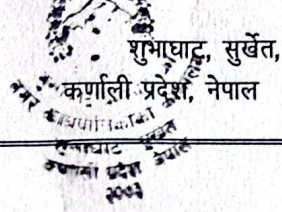 शुभाघाट, सुर्खेत,
कर्णाली प्रदेश, नेपाल
नगर कार्यपालिकाको
शुभाघाट सुर्खेत
कर्णाली प्रदेश नेपाल
२०७३